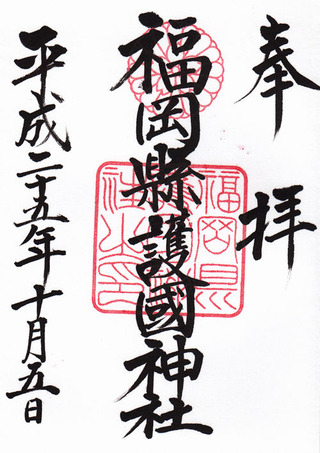 奉拝
福岡縣護國神社
平成二十五年十月五日